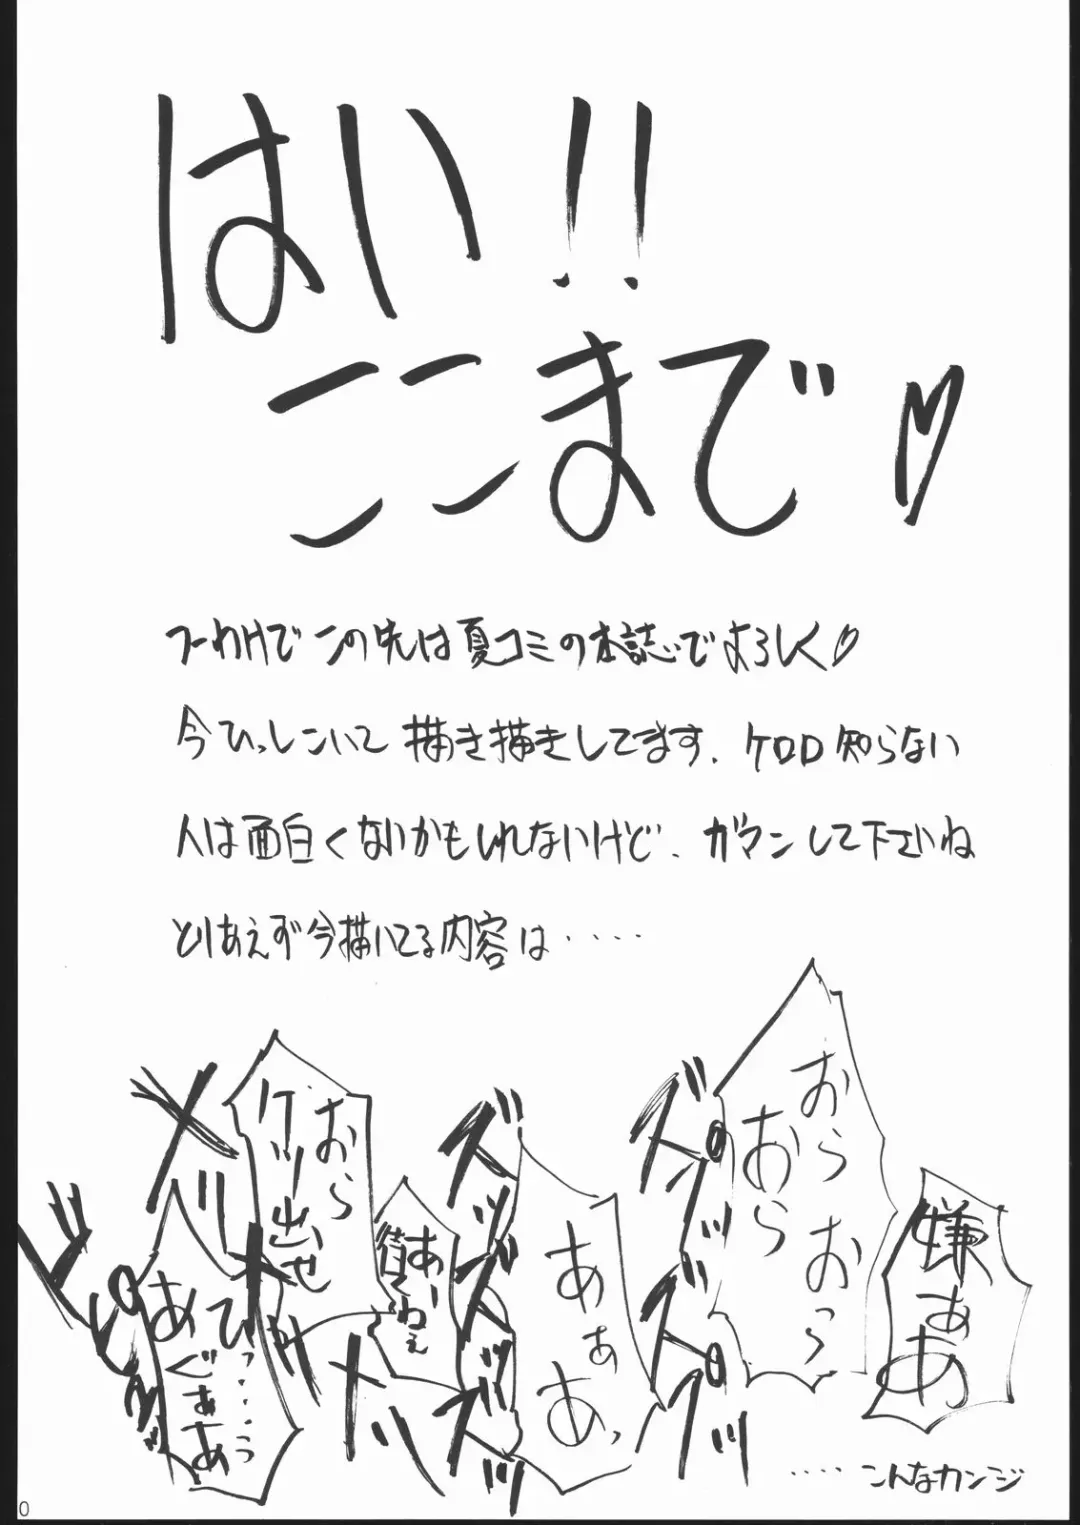 はい!!
ここまで♡
つーわけでこの先は夏コミの本誌でよろしく♡
今ひっしこいて描き描きしてます、ケロロ知らない
人は面白くないかもしれないけど、ガマンして下さいね
とりあえず今描いてる内容は‥‥
嫌ぁあ
おらおら
おらおっ
ズプッ
ズプッ
あぁあっ
ズッ
ズッ
おら
ケリ出せ
メリ
メキッ
ひっ‥‥うっ
あぐぁぁあ
‥‥こんなカンジ
0